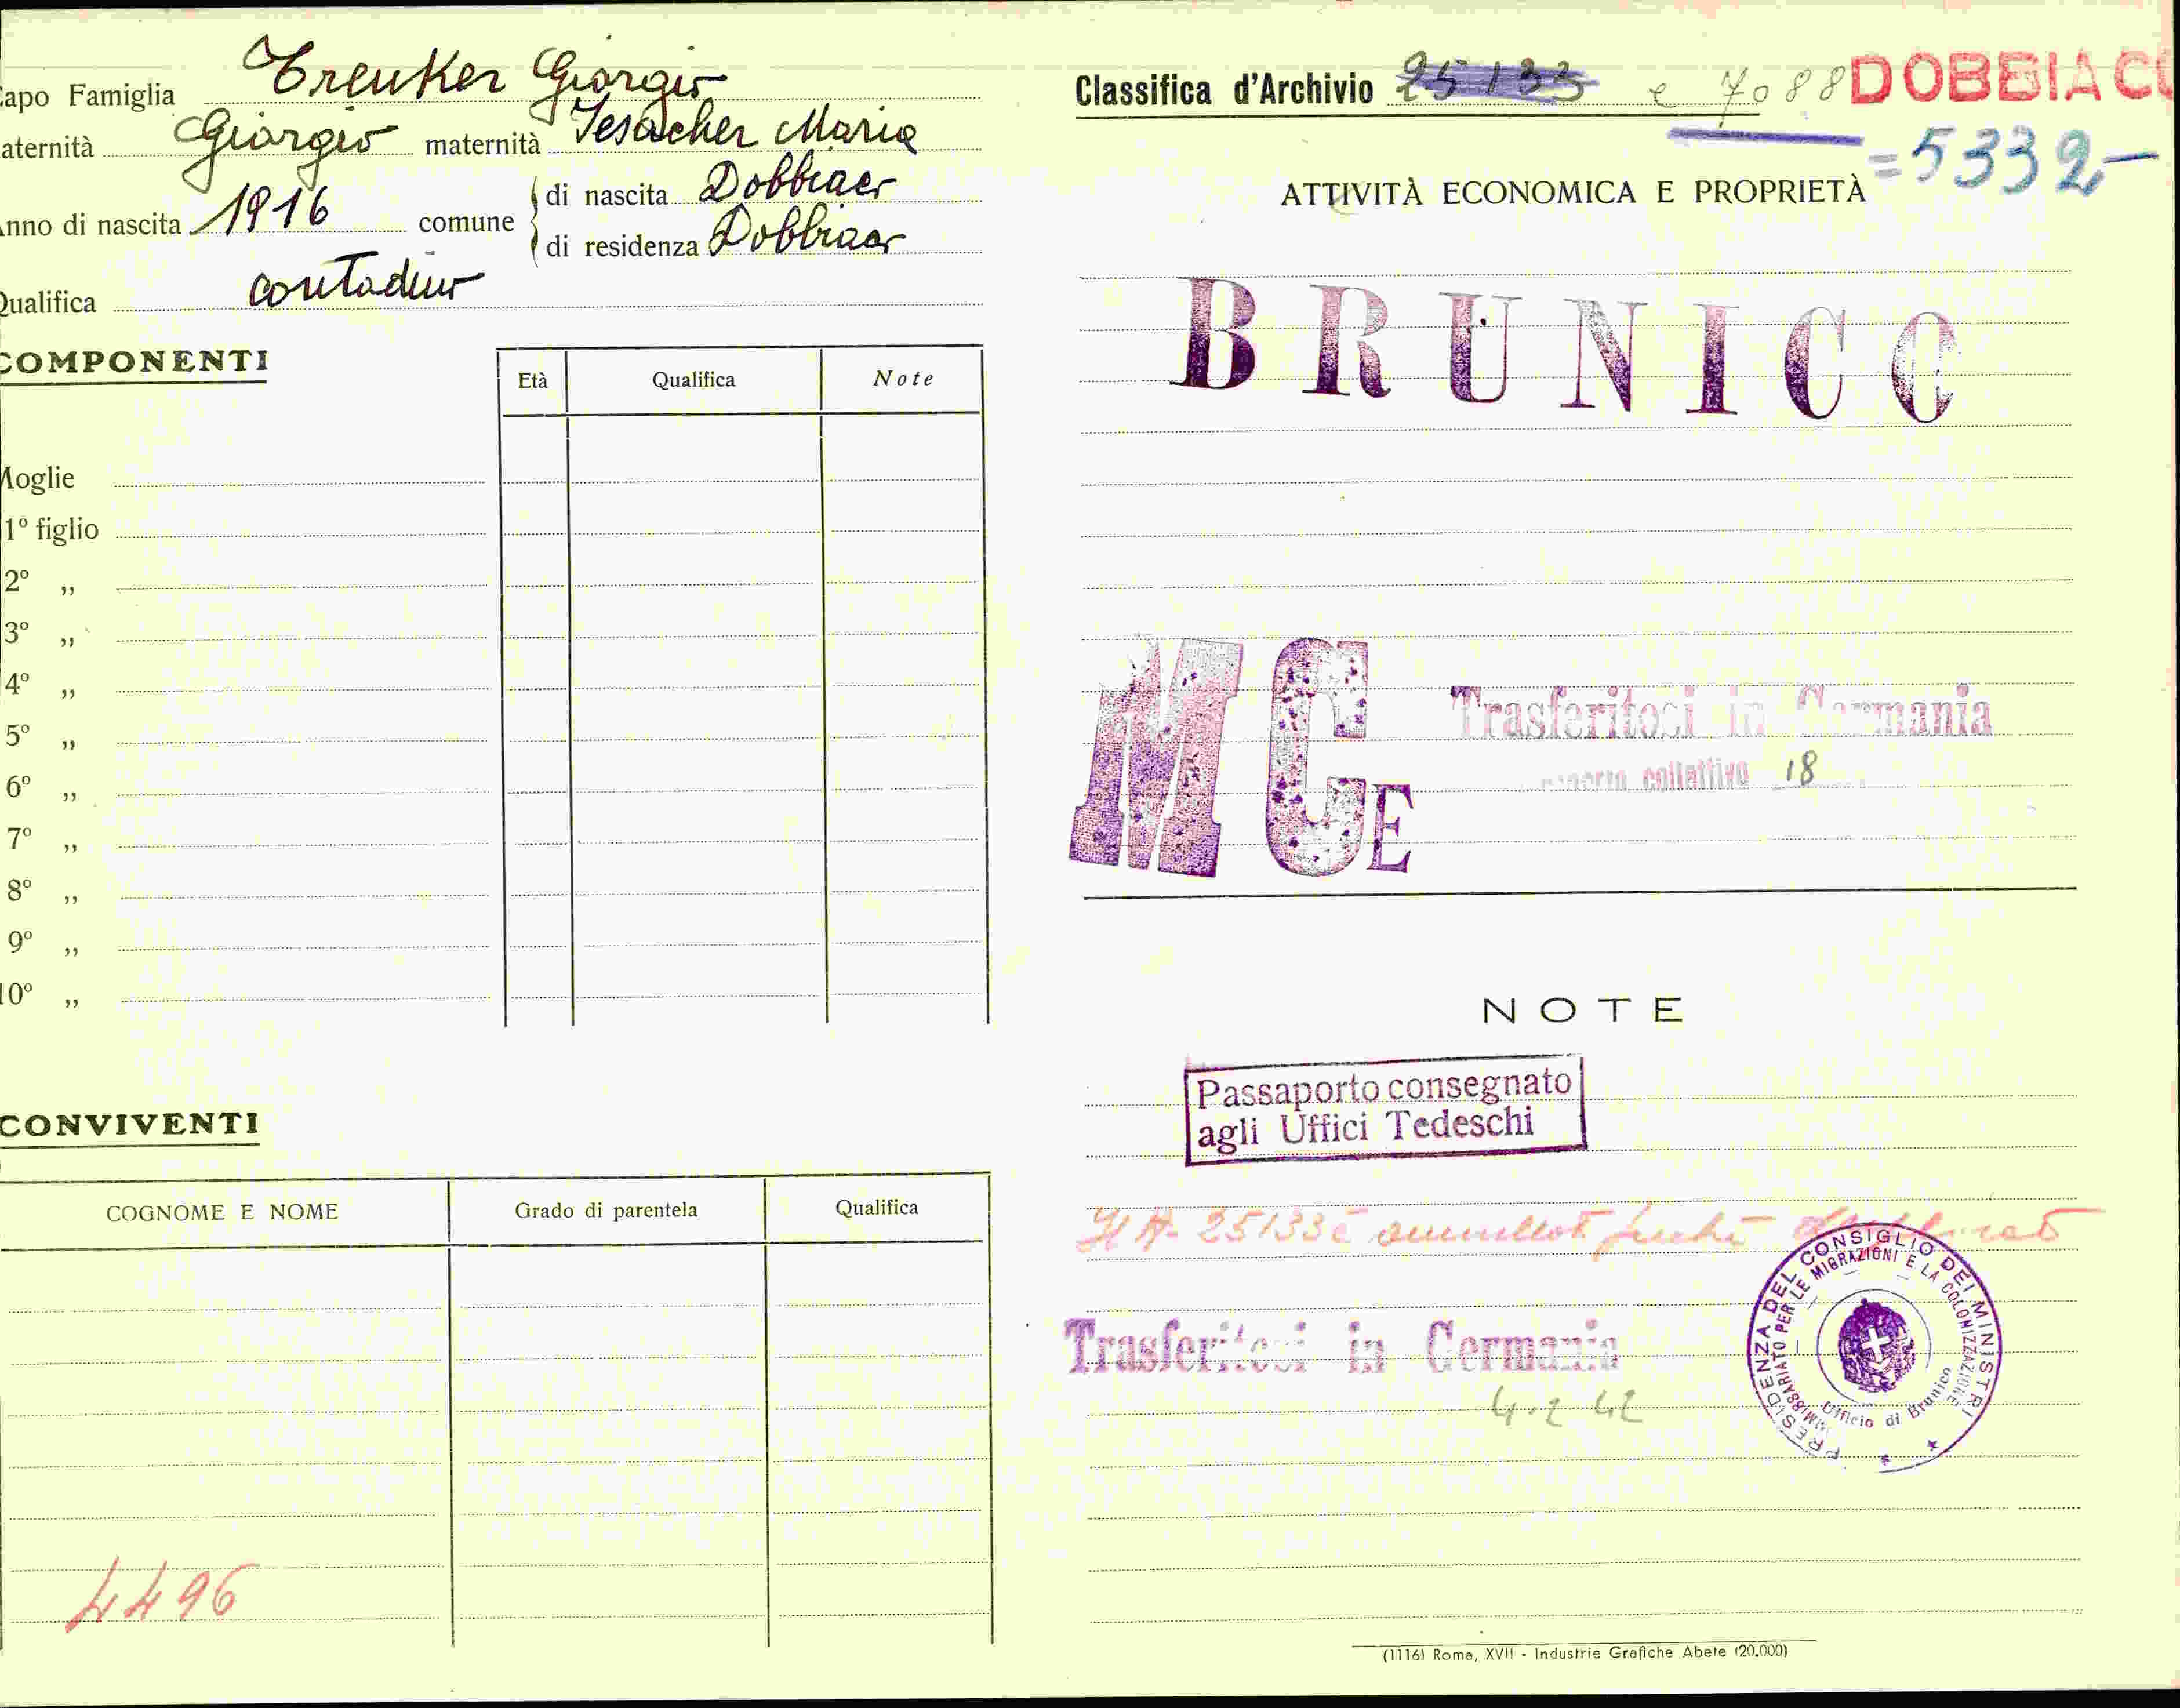 apo Famiglia Trenker Giorgio
aternità Giorgio maternità Jesacher Maria
nno di nascita 1916 comune di nascita Dobbiaco
di residenza Dobbiaco
Qualifica contadino
COMPONENTI
Età Qualifica Note
Moglie
1º figlio
2º ,,
3º ,,
4º ,,
5º ,,
6º ,,
7º ,,
8º ,,
9º ,,
10º ,,
CONVIVENTI
COGNOME E NOME Grado di parentela Qualifica
4496
Classifica d'Archivio 25133 e 7088 DOBBIACO
=5332-
ATTIVITÀ ECONOMICA E PROPRIETÀ
BRUNICO
MCE
Trasferitosi in Germania
collettivo 18
NOTE
Passaporto consegnato
agli Uffici Tedeschi
25133 è
Trasferitosi in Germania
4.2.42
PRESIDENZA DEL CONSIGLIO DEI MINISTRI
COMMISSARIATO PER LE MIGRAZIONI E LA COLONIZZAZIONE
Ufficio di Brunico
(1116) Roma, XVII - Industrie Grafiche Abete (20.000)